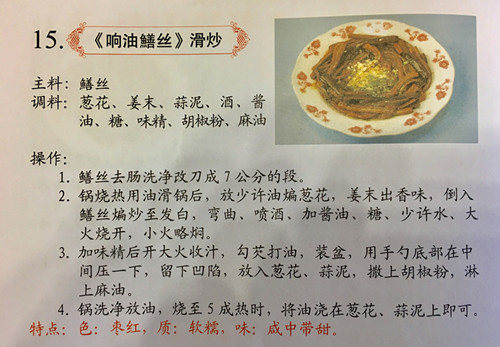 15. 《响油鳝丝》滑炒
主料：鳝丝
调料：葱花、姜末、蒜泥、酒、酱
油、糖、味精、胡椒粉、麻油
操作：
1. 鳝丝去肠洗净改刀成 7 公分的段。
2. 锅烧热用油滑锅后，放少许油煸葱花，姜末出香味，倒入
鳝丝煸炒至发白，弯曲、喷酒、加酱油、糖、少许水、大
火烧开，小火略焖。
3. 加味精后开大火收汁，勾芡打油，装盆，用手勺底部在中
间压一下，留下凹陷，放入葱花、蒜泥，撒上胡椒粉，淋
上麻油。
4. 锅洗净放油，烧至 5 成热时，将油浇在葱花、蒜泥上即可。
特点：色：枣红，质：软糯，味：咸中带甜。